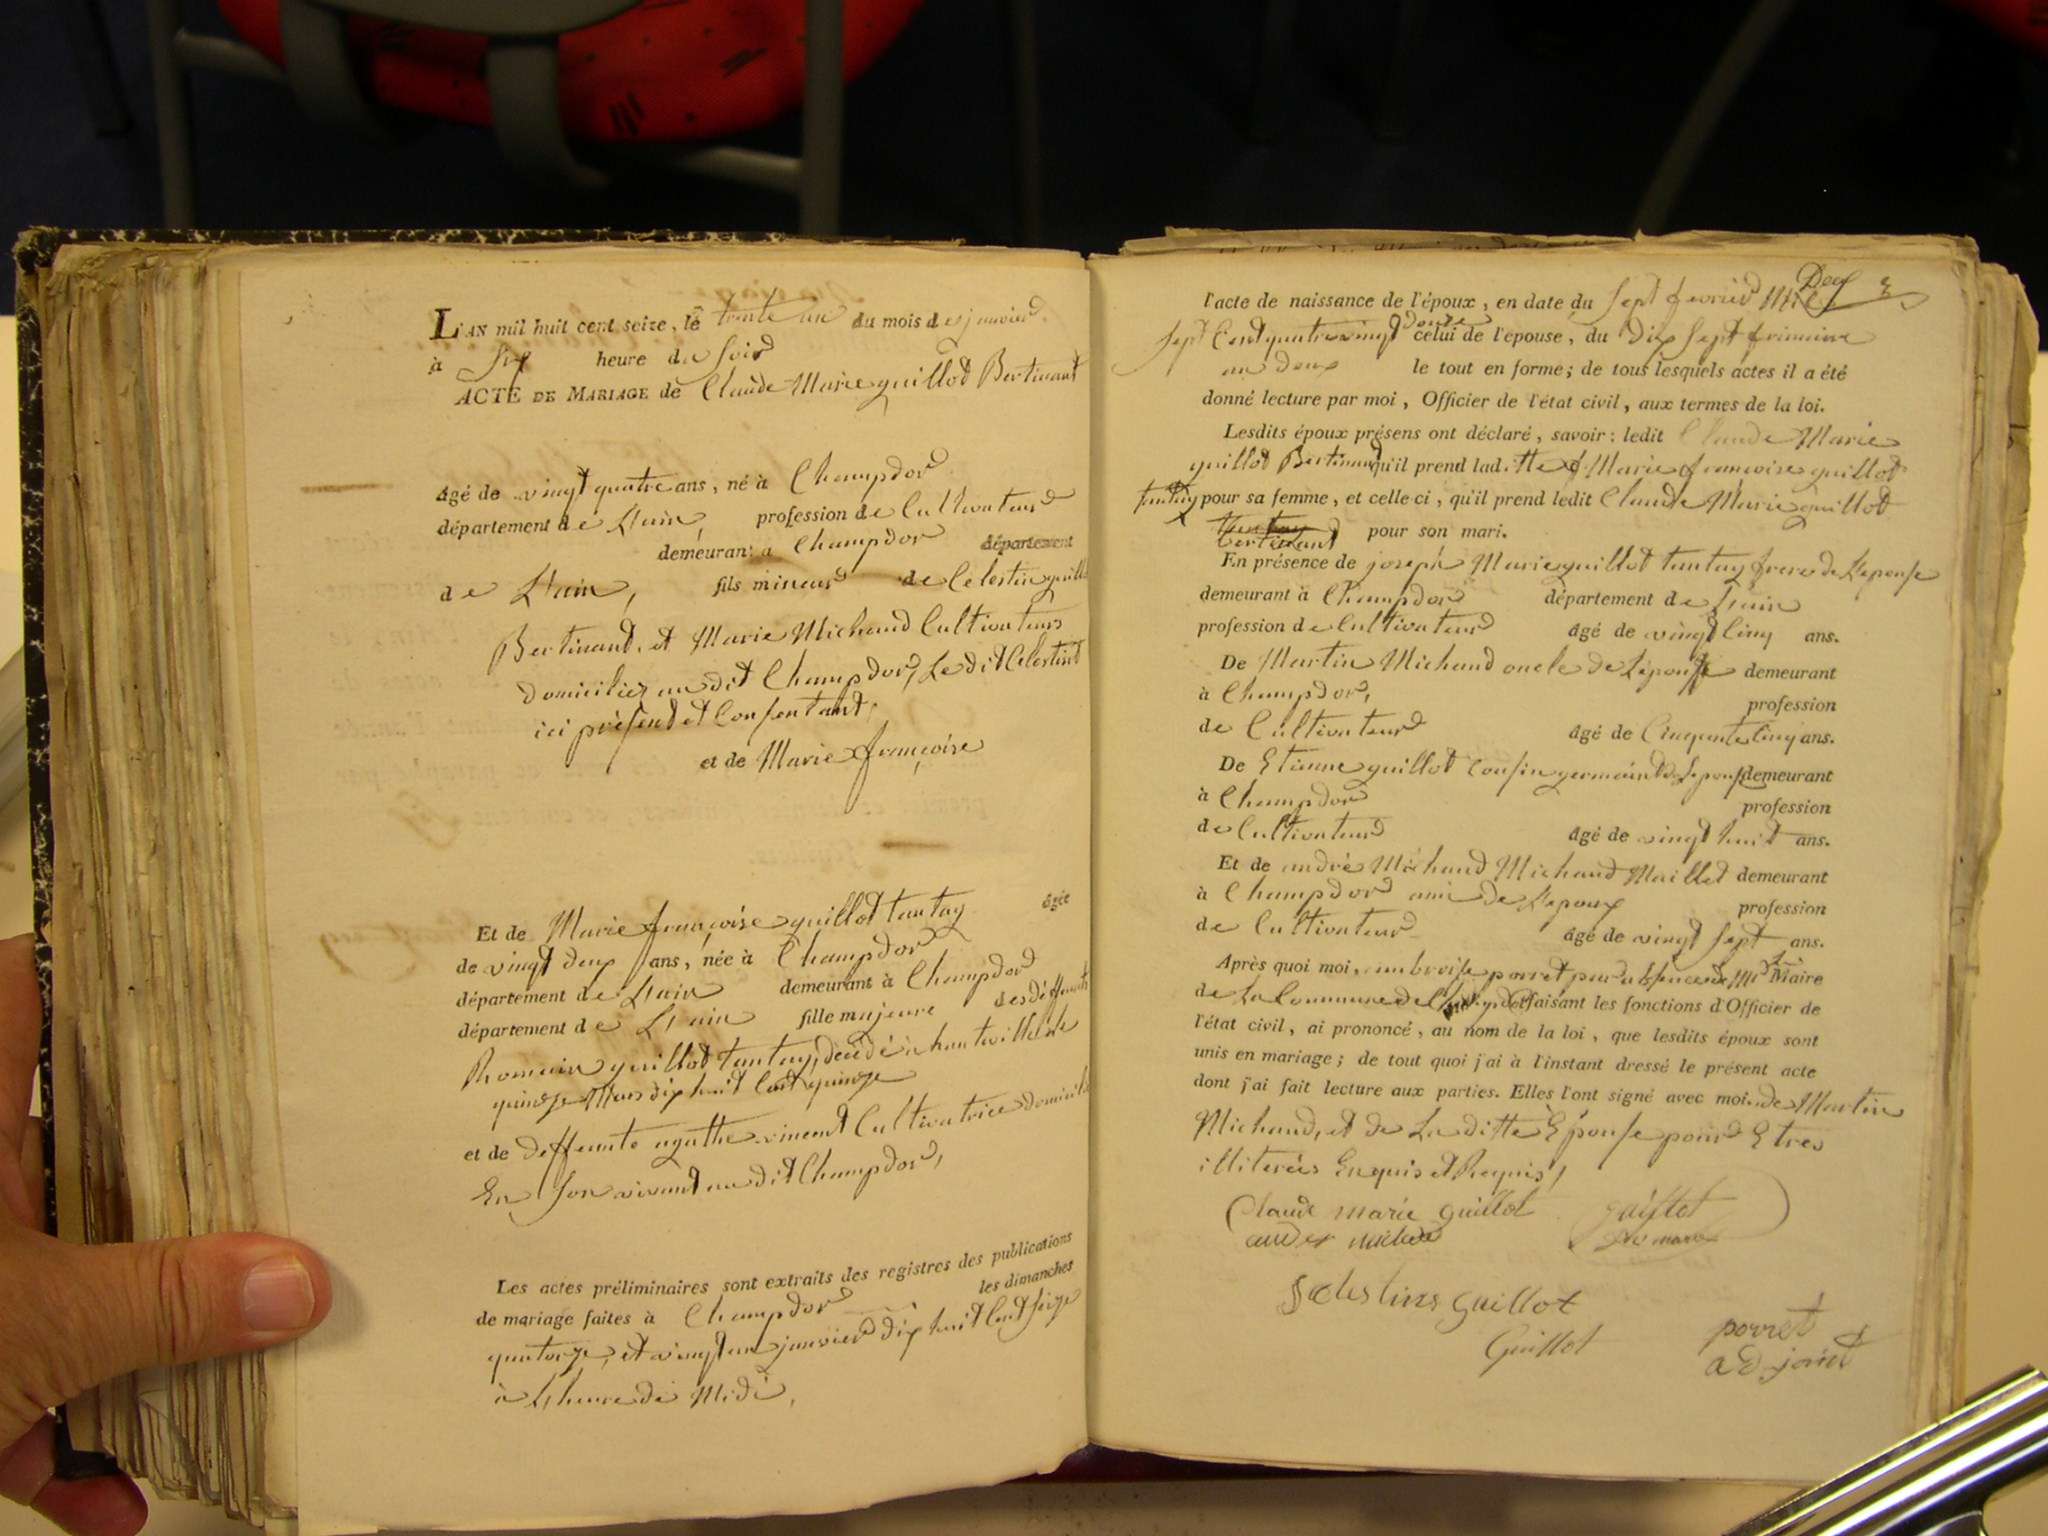 L'AN mil huit cent seize, le trente un du mois de janvier
à six heure du Soir
ACTE DE MARIAGE de Claude Marie guillot Bertinand
âgé de vingt quatre ans, né à Champdor
département de L'ain, profession de Cultivateur
demeurant à Champdor département
de L'ain, fils mineur de Celestin guillot
Bertinand, et Marie Michaud Cultivateurs
domiciliez au dit Champdor, Le dit Celestint
ici présent et Consentant,
et de Marie françoise
Et de Marie françoise guillot tantay âgée
de vingt deux ans, née à Champdor
département de L'ain demeurant à Champdor
département de L'ain fille majeure des deffunts
Romain guillot tantay, decédé à hauteville le
quinze Mars dix huit Cent quinze
et de deffunte agathe vincent Cultivatrice domicilié
En Son vivant au dit Champdor,
Les actes préliminaires sont extraits des registres des publications
de mariage faites à Champdor les dimanches
quatorze, et vingt un janvier dix huit Cent seize
à L'heure de Midi,
l'acte de naissance de l'époux, en date du Sept fevrier Mil
Sept Cent quatre vingt Douze celui de l'épouse, du Dix Sept frimaire
an deux le tout en forme; de tous lesquels actes il a été
donné lecture par moi, Officier de l'état civil, aux termes de la loi.
Lesdits époux présens ont déclaré, savoir: ledit Claude Marie
guillot Bertinand qu'il prend laditte Marie françoise guillot
tantay pour sa femme, et celle-ci, qu'il prend ledit Claude Marie guillot
Bertinand pour son mari.
En présence de joseph Marie guillot tantay frere de L'epouse
demeurant à Champdor département de L'ain
profession de Cultivateur âgé de vingt Cinq ans.
De Martin Michaud oncle de L'épouse demeurant
à Champdor, profession
de Cultivateur âgé de Cinquante Cinq ans.
De Etienne guillot Cousin germaint de L'epouse demeurant
à Champdor profession
de Cultivateur âgé de vingt huit ans.
Et de andré Michaud Michaud Maillet demeurant
à Champdor ami de L'epoux profession
de Cultivateur âgé de vingt Sept ans.
Après quoi moi, ambroise porret par absence de Mr Le Maire
de La Commune de Champdor faisant les fonctions d'Officier de
l'état civil, ai prononcé, au nom de la loi, que lesdits époux sont
unis en mariage; de tout quoi j'ai à l'instant dressé le présent acte
dont j'ai fait lecture aux parties. Elles l'ont signé avec moi. de Martin
Michaud, et de La ditte Épouse pour Etres
illiterées Enquis et Requis,
Claude marie guillot guillot
Celestins guillot
Guillot porret
adjoint